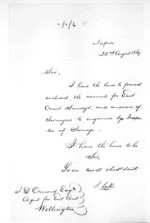 Napier
20th August 1869
Sir,
I have the honor to forward
enclosed the accounts for East
Coast Surveys and
Surveyors to
of Surveys.
I have the honor to be
Sir,
Your most obedt servt
S. Locke
J. D. Ormond Esqre
Agent for East Coast
Wellington